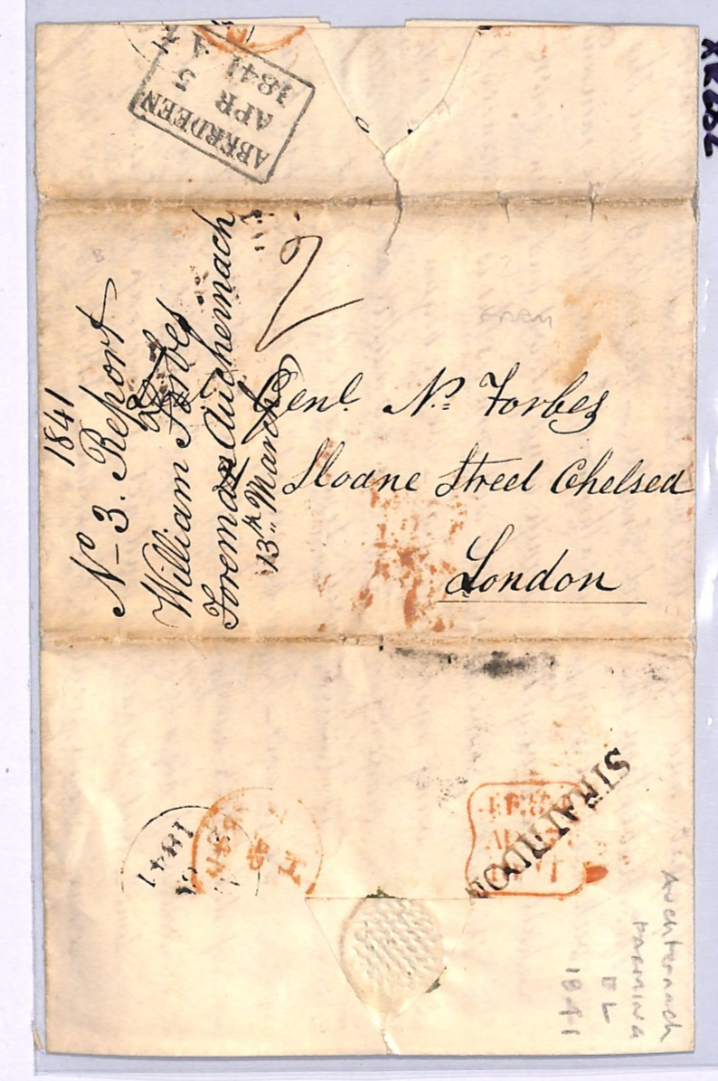 ABERDEEN
APR 5
1841 A
1841
No 3. Report
William Forbes
Foreman Auchernach
13th March
2
Genl. N. Forbes
Sloane Street Chelsea
London
FARM
STRATHDON
1841
Auchternach
FARMING
EL
1841